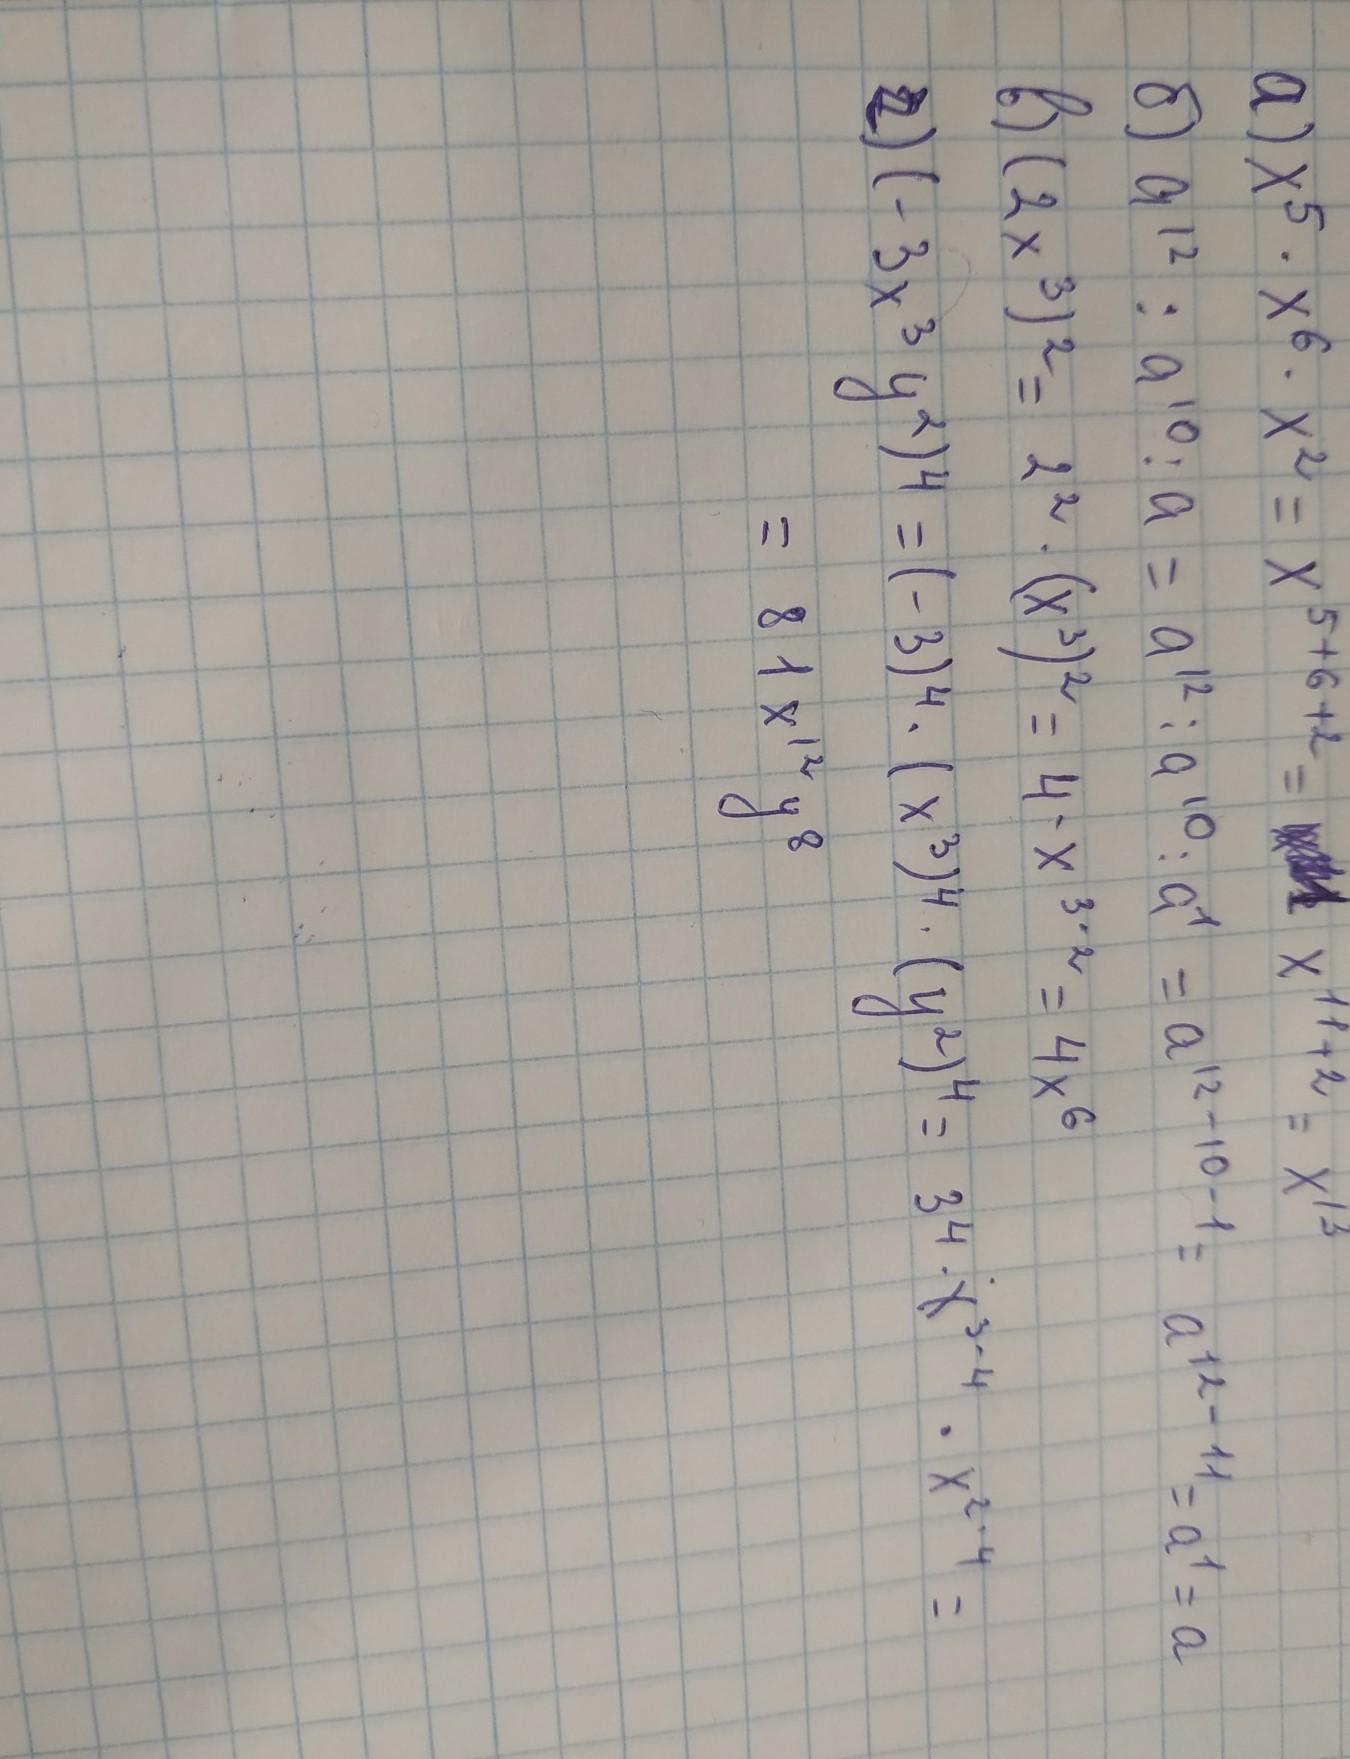 а) x⁵ · x⁶ · x² = x⁵⁺⁶⁺² = x¹¹⁺² = x¹³
б) a¹² : a¹⁰ : a = a¹² : a¹⁰ : a¹ = a¹²⁻¹⁰⁻¹ = a¹²⁻¹¹ = a¹ = a
в) (2x³)² = 2² · (x³)² = 4 · x³˙² = 4x⁶
г) (-3x³y²)⁴ = (-3)⁴ · (x³)⁴ · (y²)⁴ = 3⁴ · x³˙⁴ · x²˙⁴ =
= 81x¹²y⁸